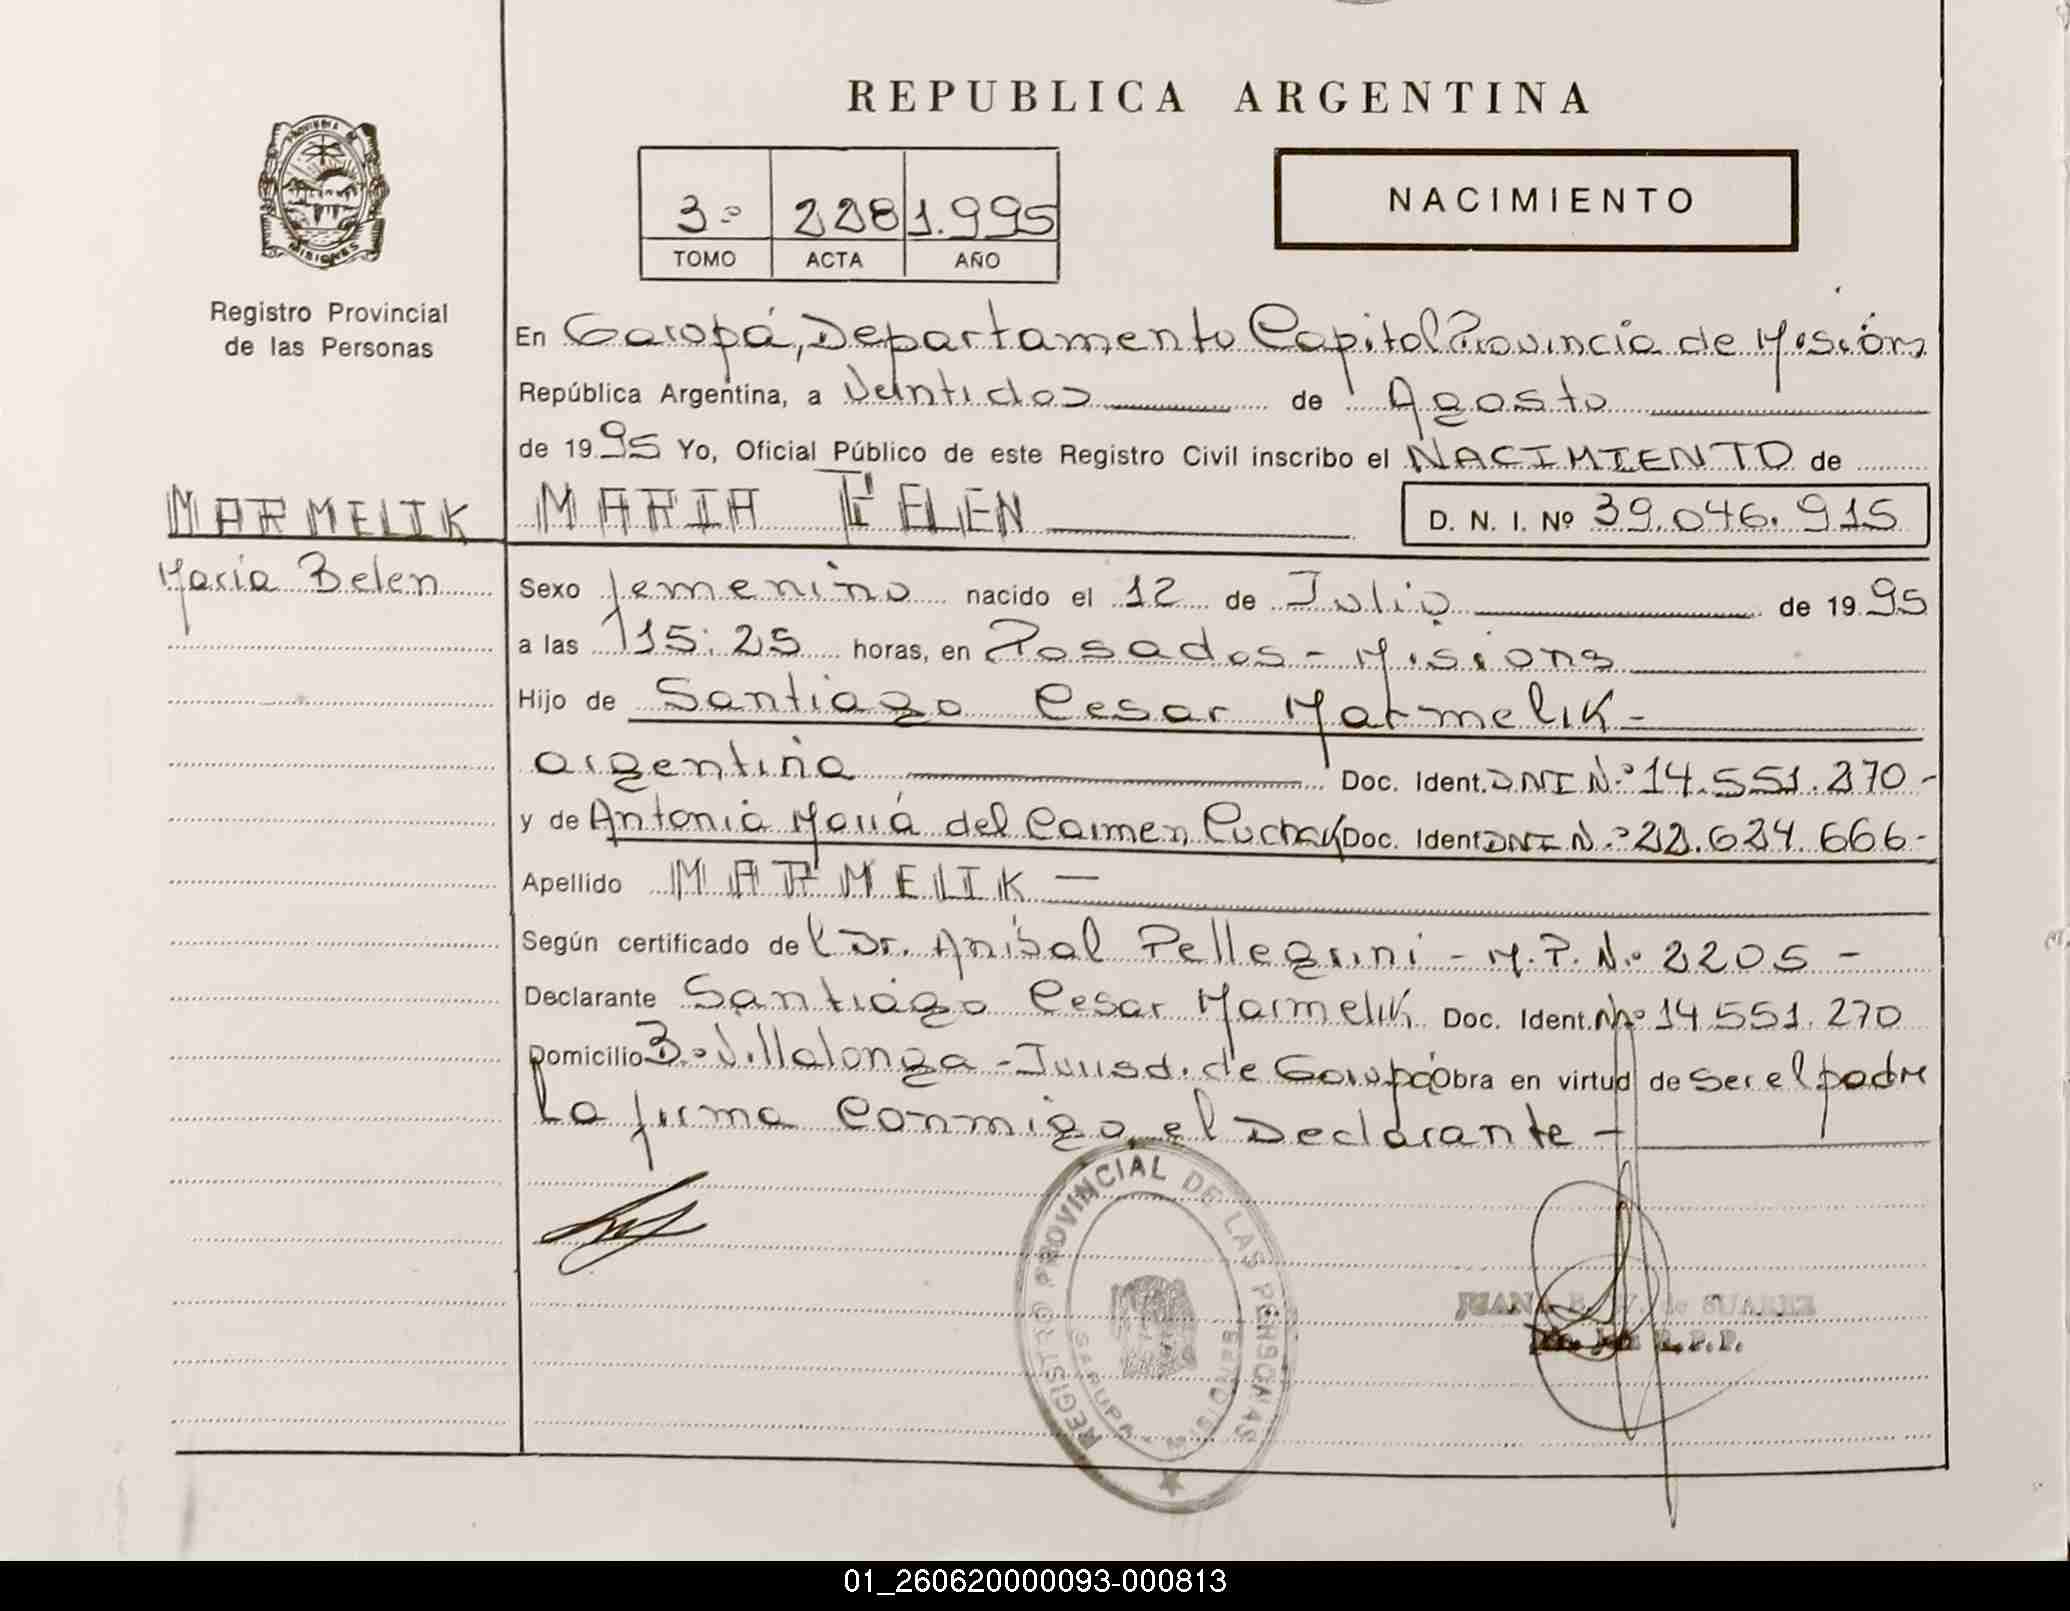 REPUBLICA ARGENTINA
PROVINCIA DE
MISIONES
Registro Provincial
de las Personas
3º 228 1.995
TOMO ACTA AÑO
NACIMIENTO
En Garupá, Departamento Capital Provincia de Misiones
República Argentina, a Veintidos de Agosto
de 1995 Yo, Oficial Público de este Registro Civil inscribo el NACIMIENTO de
MARMELIK MARIA BELEN D. N. I. Nº 39.046.915
Maria Belen
Sexo femenino nacido el 12 de Julio de 1995
a las 15:25 horas, en Posadas - Misiones
Hijo de Santiago Cesar Marmelik -
argentina Doc. Ident. DNI N.º 14.551.270-
y de Antonia María del Carmen Doc. Ident DNI N.º 22.624.666-
Apellido MARMELIK —
Según certificado del Dr. Anibal Pellegrini - M.P. N.º 2205 -
Declarante Santiago Cesar Marmelik Doc. Ident. Nº 14.551.270
Domicilio B.º Villalonga - Jurisd. de Garupá Obra en virtud de ser el padre
La firma conmigo, el Declarante -
REGISTRO PROVINCIAL DE LAS PERSONAS
GARUPA - MISIONES
JUANA de SUAREZ
R.P.P.
01_260620000093-000813